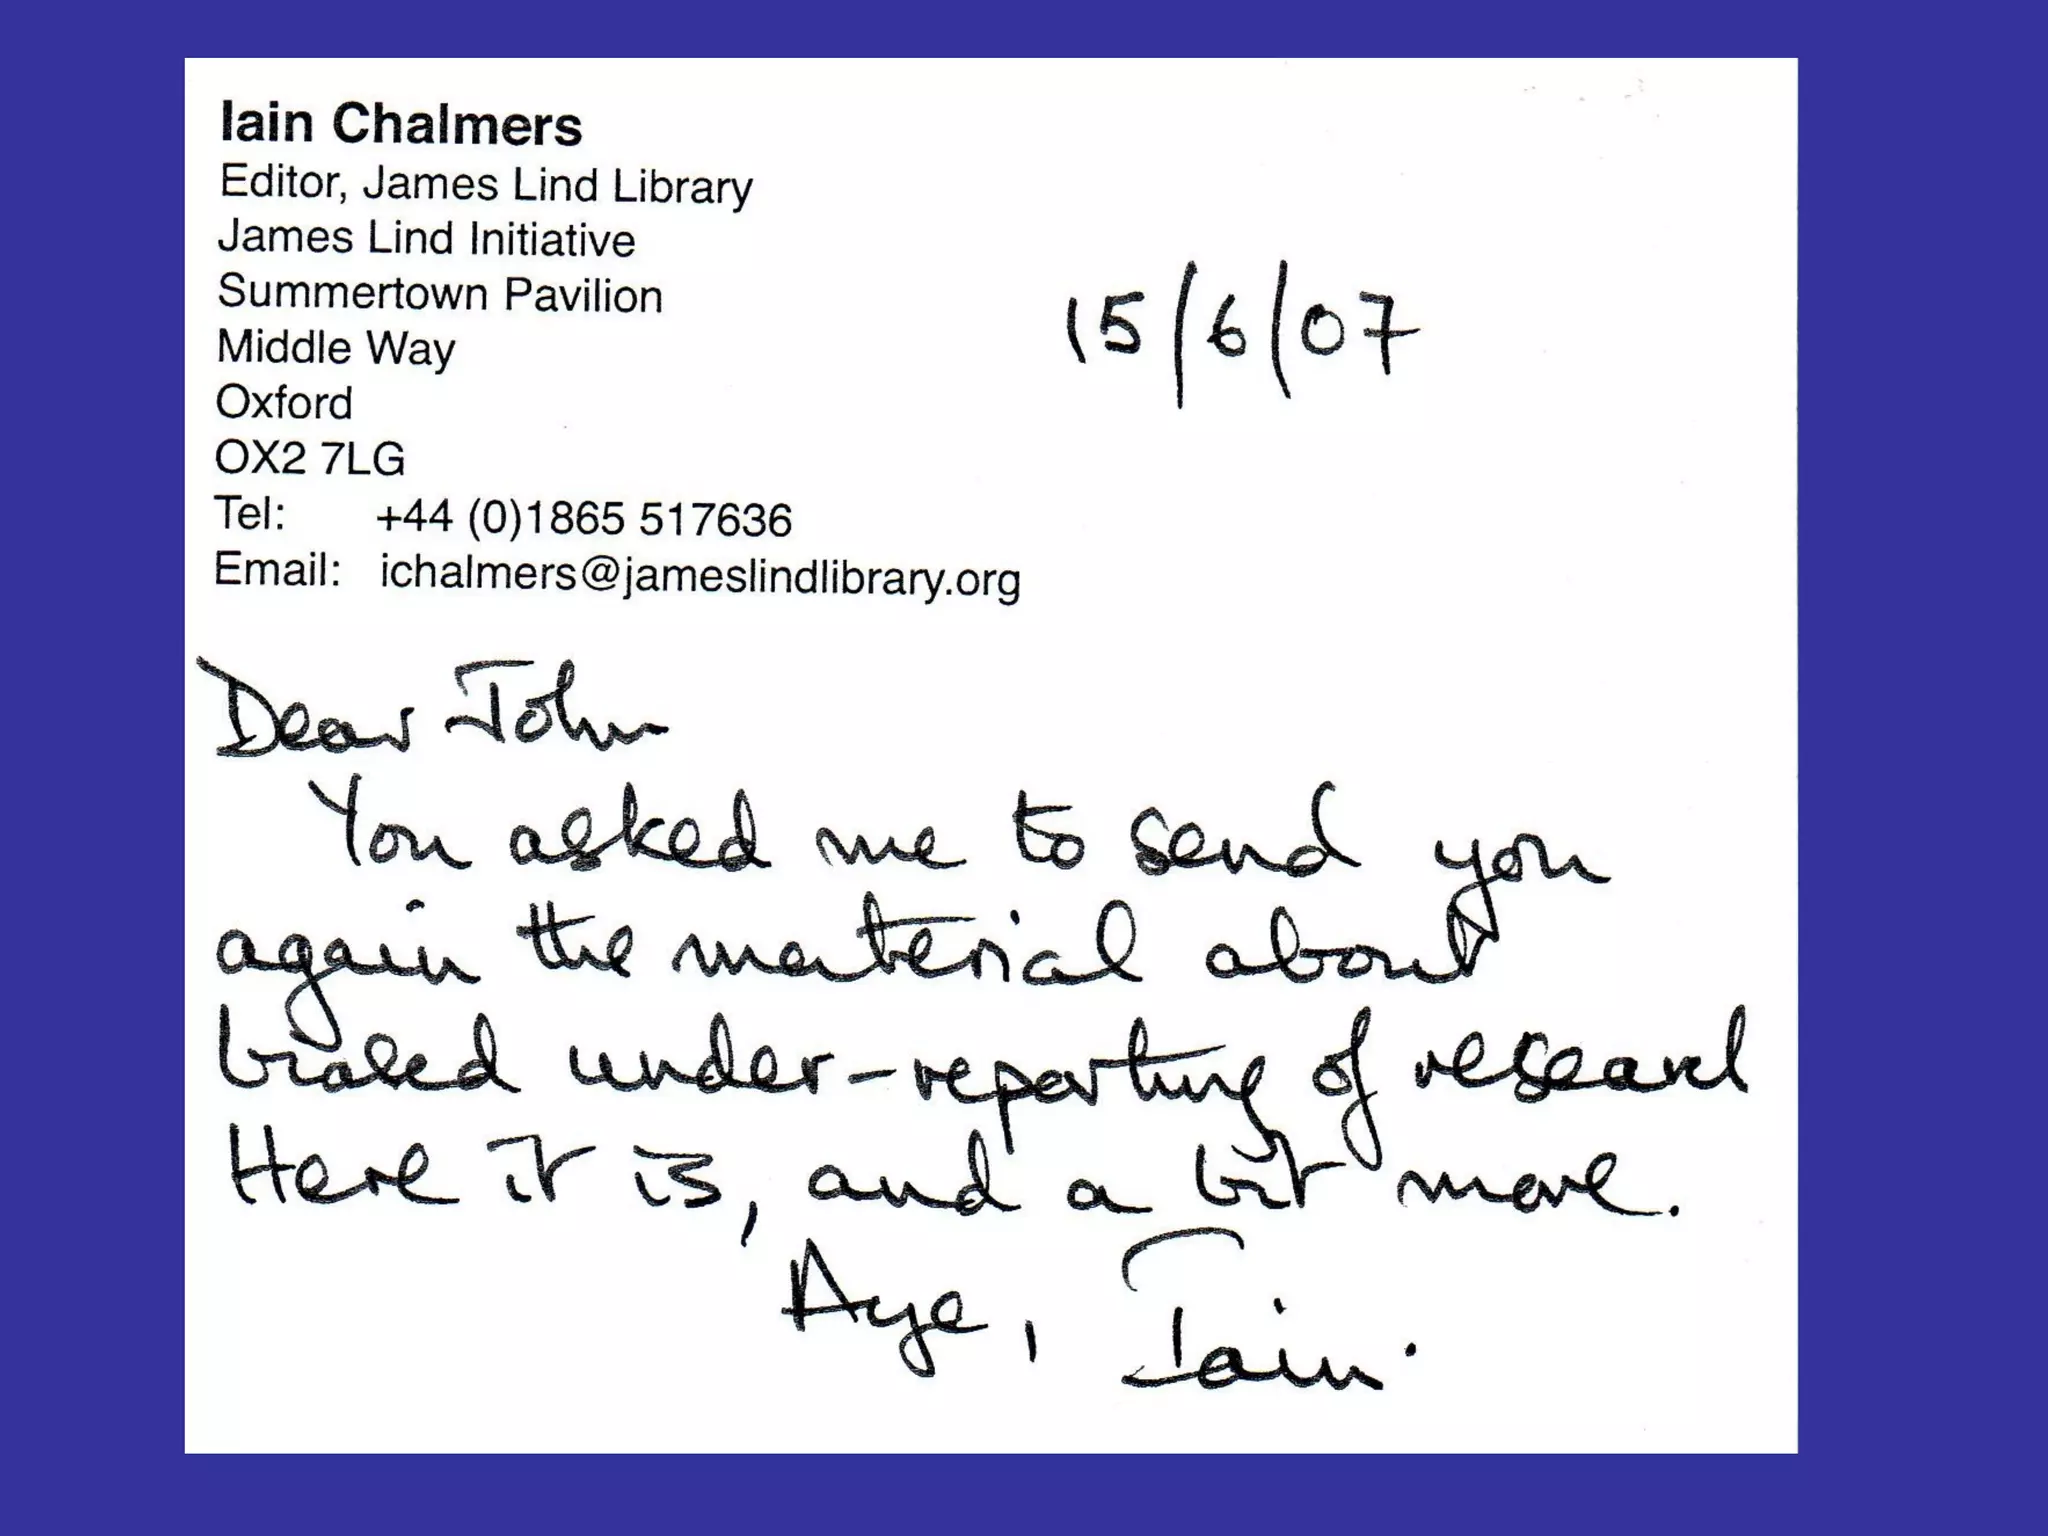 Iain Chalmers
Editor, James Lind Library
James Lind Initiative
Summertown Pavilion
Middle Way
Oxford
OX2 7LG
Tel: +44 (0)1865 517636
Email: ichalmers@jameslindlibrary.org
15/6/07
Dear John
You asked me to send you
again the material about
biased under-reporting of research
Here it is, and a bit more.
Aye, Iain.